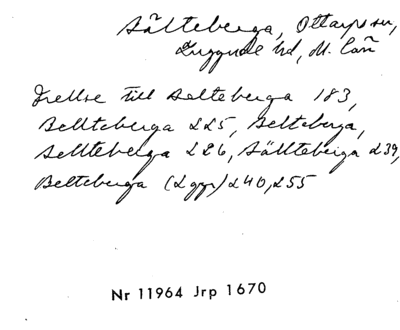 Bälteberga, Ottarps sn,
Luggude hd, M. län
Frellse till Belteberga 183,
Bellteberga 225, Belteberga,
Bellteberga 226, Bällteberga 239,
Belteberga (2 ggr) 240, 255
Nr 11964 Jrp 1670